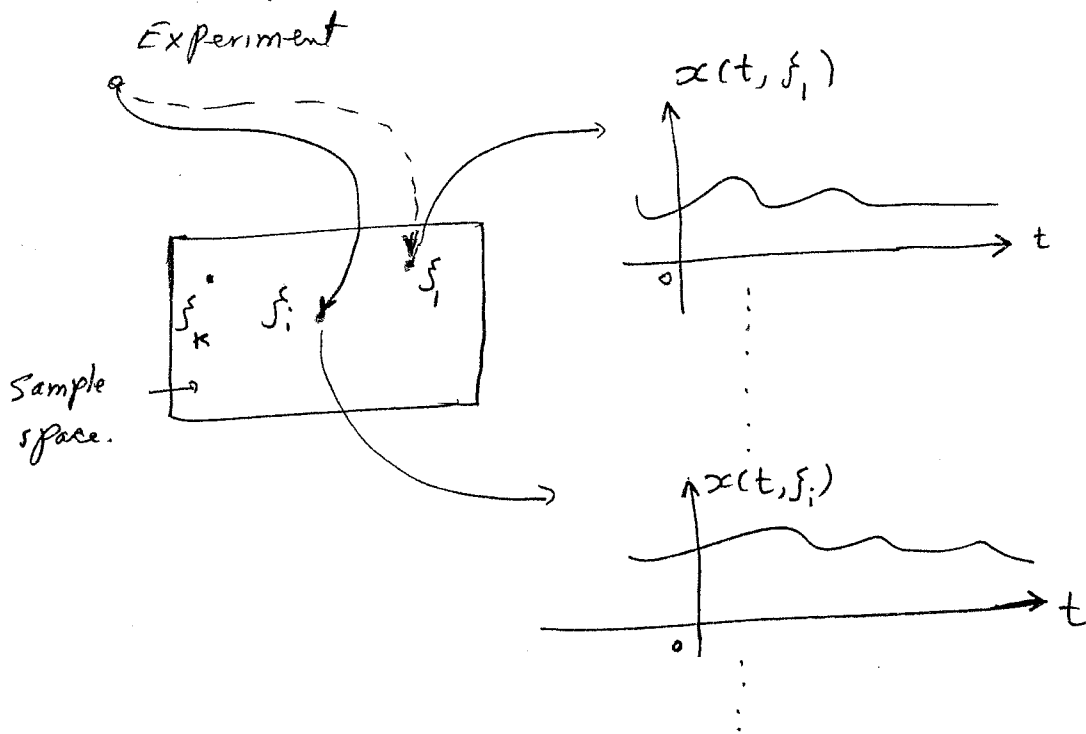 Experiment
x(t, ξ₁)
t
0
ξ₁
ξᵢ
ξₖ
Sample
space.
x(t, ξᵢ)
t
0